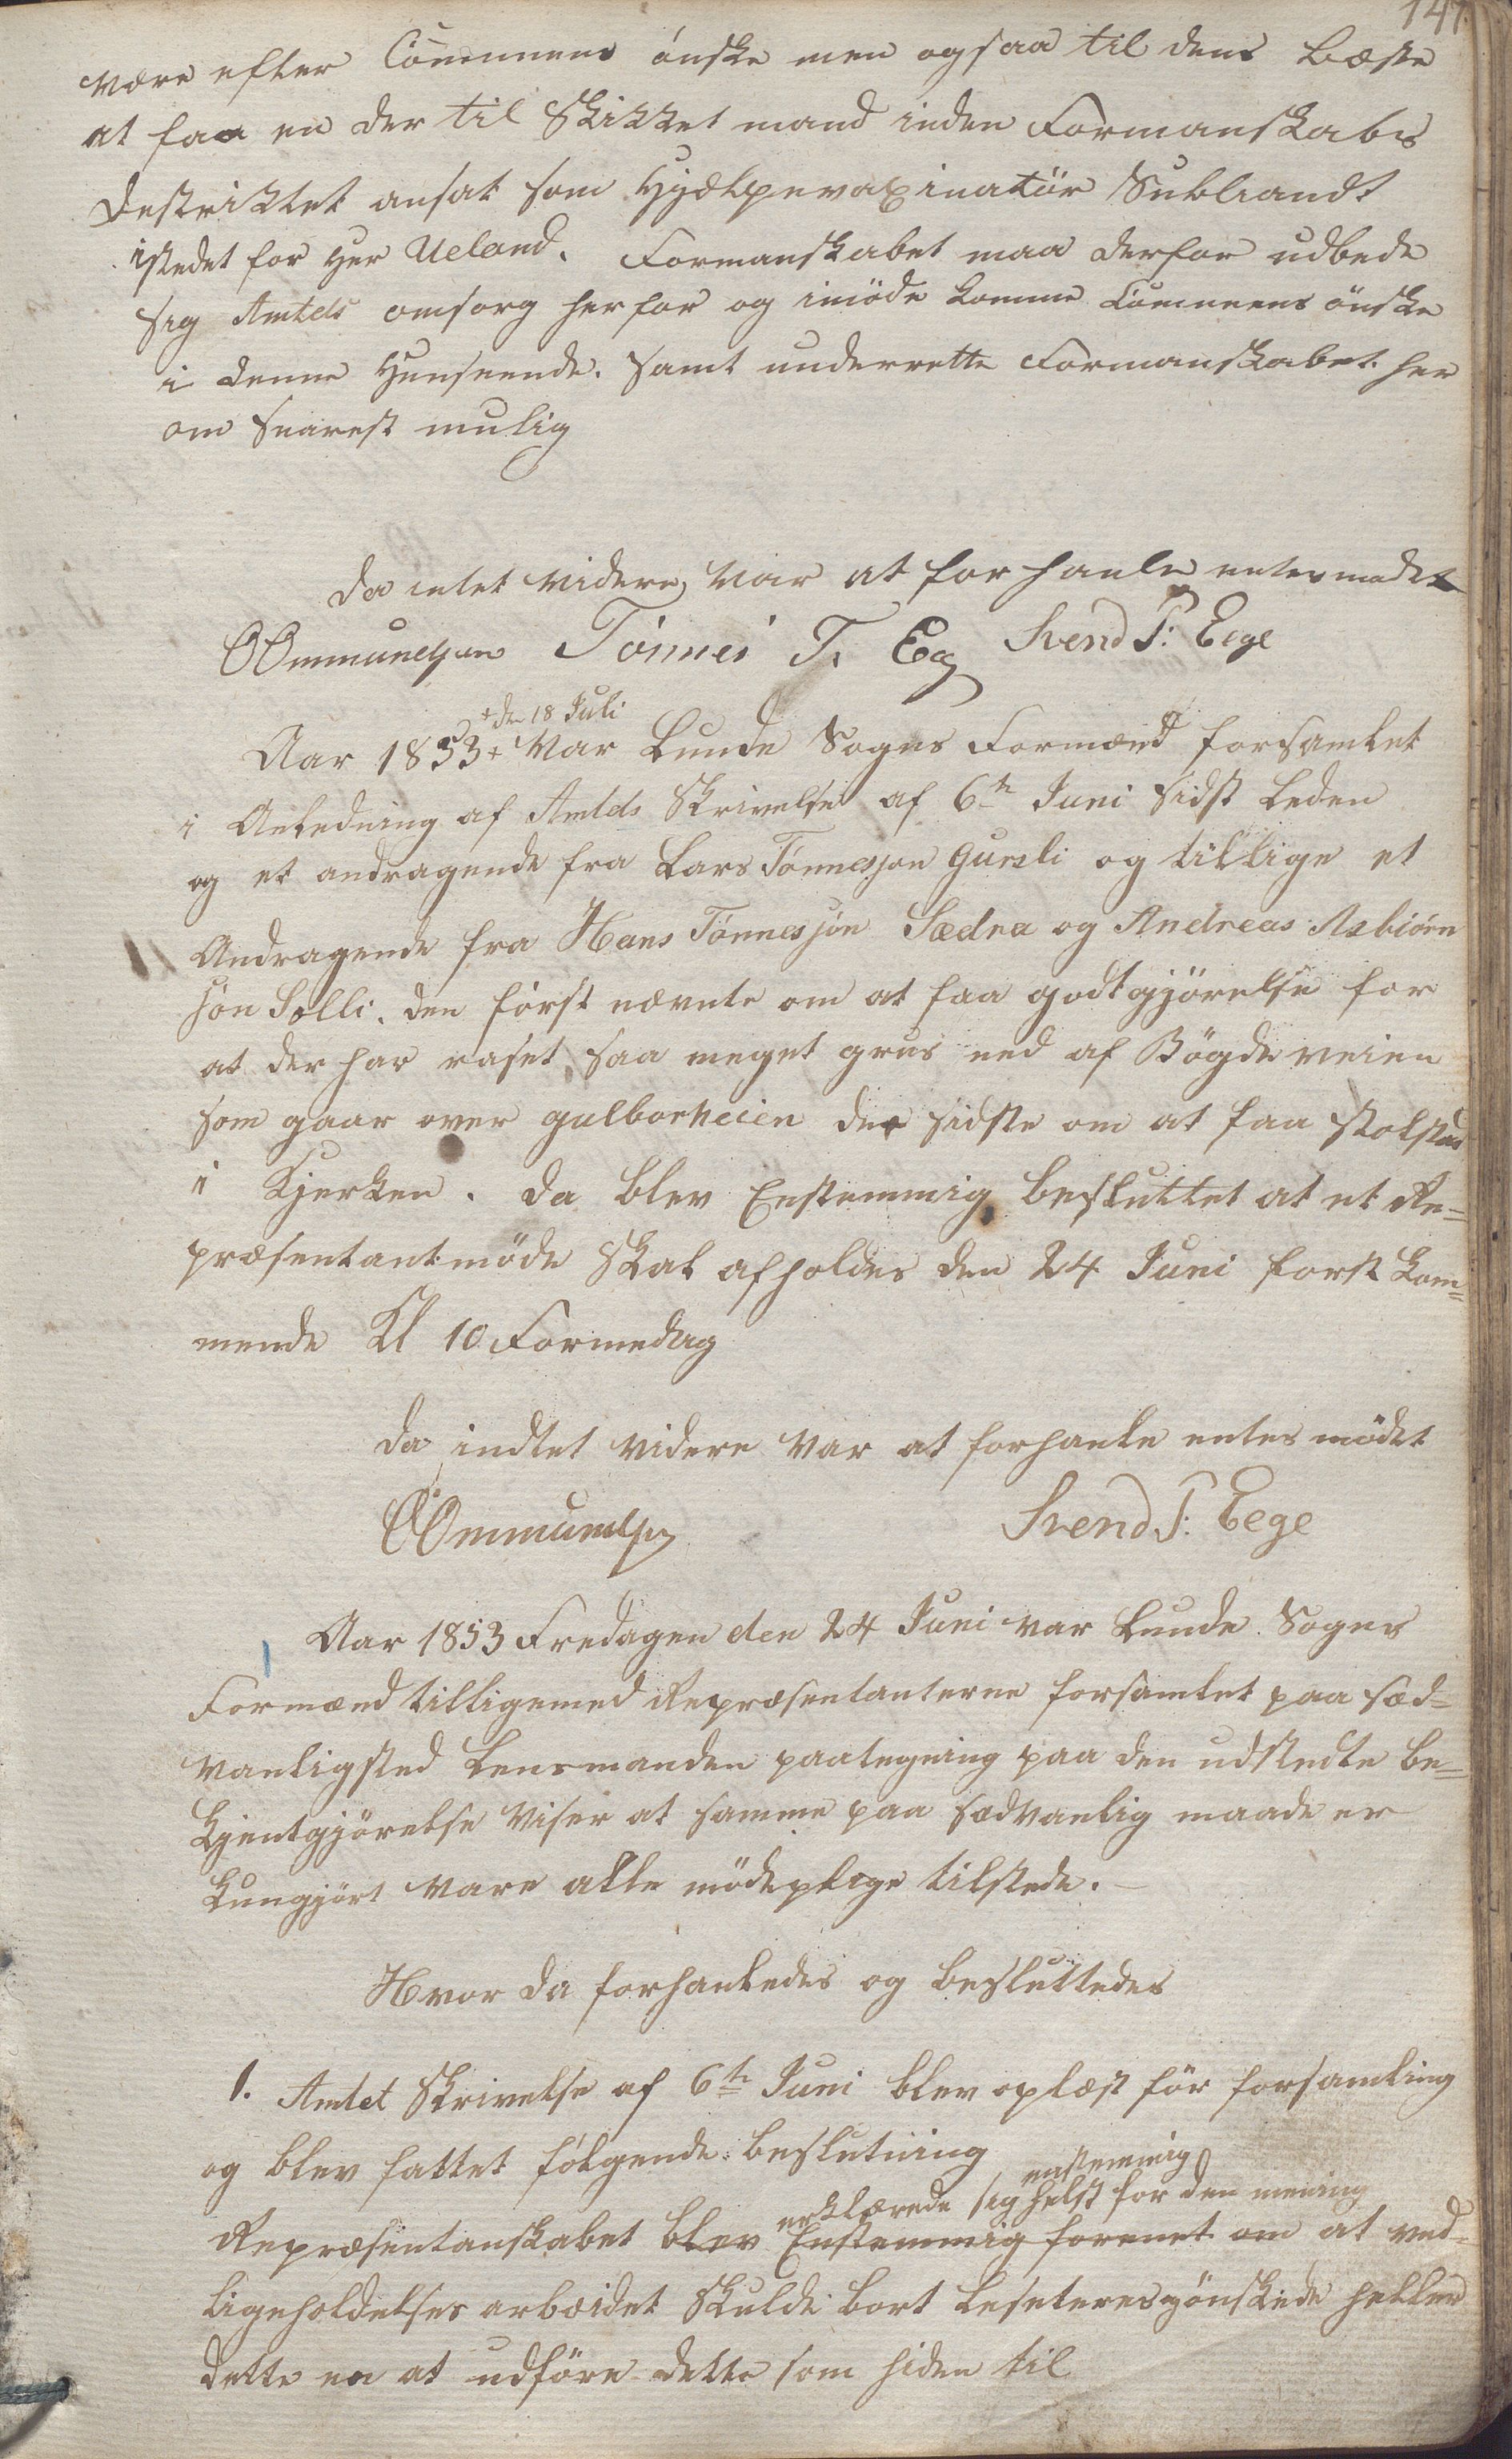 147
være efter Communens ønske men ogsaa til dens Bæste
at faa en der til Skikket mand inden Formanskabs
Destriktet ansat som Hjælpevaxinatör Subliandt
istedet for Her Ueland. Formanskabet maa derfor udbede
sig Amtets omsorg herfor og imöde komme Communens önske
i denne Henseende. Samt underrette Formanskabet her
om snarest mulig
Da intet videre var at forhanle entes mødet
OOmmundsen Tönnes T. Eeg Svend P: Eege
+ den 18 Juli
Aar 1853+ Var Lunde Sogns Formænd forsamlet
i Anledning af Amtets Skrivelse af 6te Juni sidst leden
og et andragende fra Lars Tönnesson Gursli og tillige et
Andragende fra Hans Tönnesson Sædra og Andreas Asbiørn
son Solli. den först nævnte om at faa godtgjörelse for
at der har raset saa meget grus ned af Bögdeveien
som gaar over gulborheien der sidste om at faa stolstad
i Kjerken. Da blev Enstemmig besluttet at et Re=
præsentantmöde Skal afholdes den 24 Juni først kom=
mende Kl 10 Formedag
Da indtet videre var at forhanle entes mödet
OOmmundsen Svend P: Eege
Aar 1853 Fredagen den 24 Juni var Lunde Sogns
Formænd tilligemed Repræsentanterne forsamlet paa sæd=
vanligsted Lensmanden paategning paa den udstedte be=
kjentgjörelse Viser at samme paa sædvanlig maade er
kungjört vare alle mödeplige tilstede.-
Hvor da forhanledes og besluttedes
1. Amtet Skrivelse af 6te Juni blev oplæst för forsamling
og blev fattet fölgende beslutning
enstemmig
erklærede sig helst for den mening
Repræsentanskabet blev Enstemmig forenet om at ved=
ligeholdelses arbeidet Skulde bort leseteres önskede heller
dette en at udföre dette som hiden til